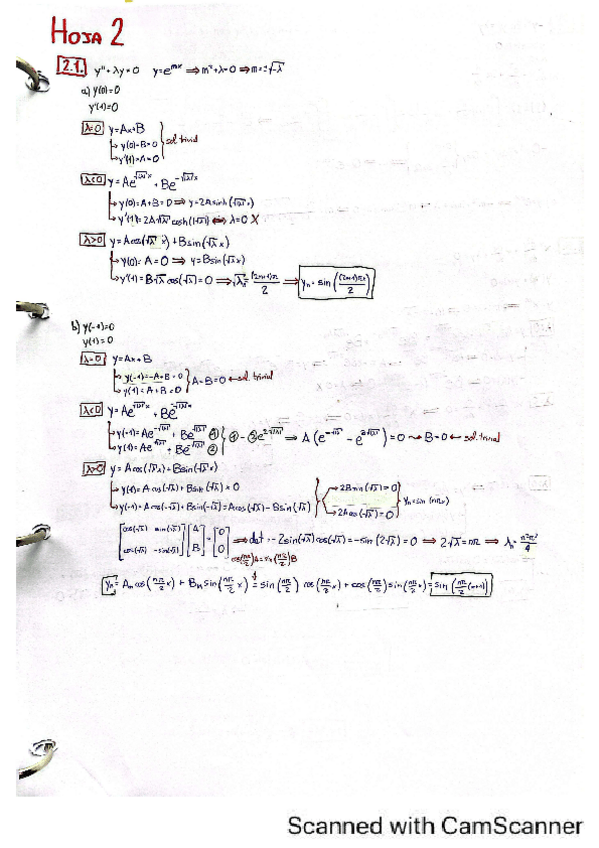 HOJA 2
2.1. y'' + λy = 0 y = e^{mx} ⇒ m² + λ = 0 ⇒ m = ±√-λ
a) y(0) = 0
y'(1) = 0
λ=0 y = Ax + B
y(0) = B = 0
y'(1) = A = 0
sol. trivial
λ<0 y = Ae^{√|λ| x} + Be^{-√|λ| x}
y(0) = A + B = 0 ⇒ y = 2A sinh(√|λ| x)
y'(1) = 2A√|λ| cosh(√|λ|) ⇔ λ = 0 X
λ>0 y = A cos(√λ x) + B sin(√λ x)
y(0) = A = 0 ⇒ y = B sin(√λ x)
y'(1) = B√λ cos(√λ) = 0 ⇒ √λ_n = (2n+1)π/2 ⇒ y_n = sin((2n+1)πx/2)
b) y(-1) = 0
y(1) = 0
λ=0 y = Ax + B
y(-1) = -A + B = 0
y(1) = A + B = 0
A = B = 0 ← sol. trivial
λ<0 y = Ae^{√|λ| x} + Be^{-√|λ| x}
y(-1) = Ae^{-√|λ|} + Be^{√|λ|} ①
y(1) = Ae^{√|λ|} + Be^{-√|λ|} ②
① - ②e^{2√|λ|} ⇒ = 0 → B = 0 ← sol. trivial
λ>0 y = A cos(√λ x) + B sin(√λ x)
y(1) = A cos(√λ) + B sin(√λ) = 0
y(-1) = A cos(-√λ) + B sin(-√λ) = A cos(√λ) - B sin(√λ)
→ 2B sin(√λ) = 0
→ 2A cos(√λ) = 0
y_n = sin(nπx)
[cos(√λ) sin(√λ) / cos(√λ) -sin(√λ)] [A / B] = [0 / 0] ⇒ det = -2 sin(√λ) cos(√λ) = -sin(2√λ) = 0 ⇒ 2√λ = nπ ⇒ λ_n = n²π²/4
cos(nπ/2)A = sin(nπ/2)B
y_n = A_n cos(nπ/2 x) + B_n sin(nπ/2 x) = sin(nπ/2) cos(nπ/2 x) + cos(nπ/2) sin(nπ/2 x) = sin(nπ/2 (x+1))
Scanned with CamScanner